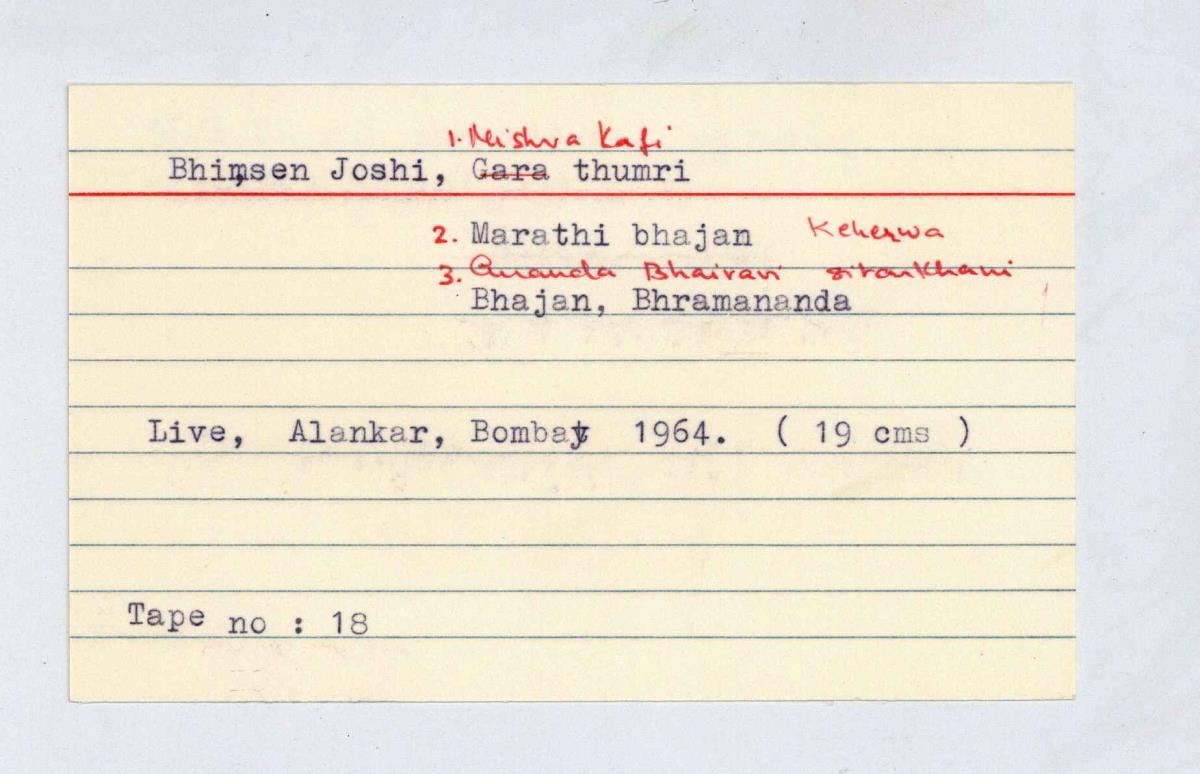 1. Mishra Kafi
Bhimsen Joshi, Gara thumri
2. Marathi bhajan Keherwa
3. Ananda Bhairavi sitarkhani
Bhajan, Bhramananda
Live, Alankar, Bombay 1964. ( 19 cms )
Tape no : 18